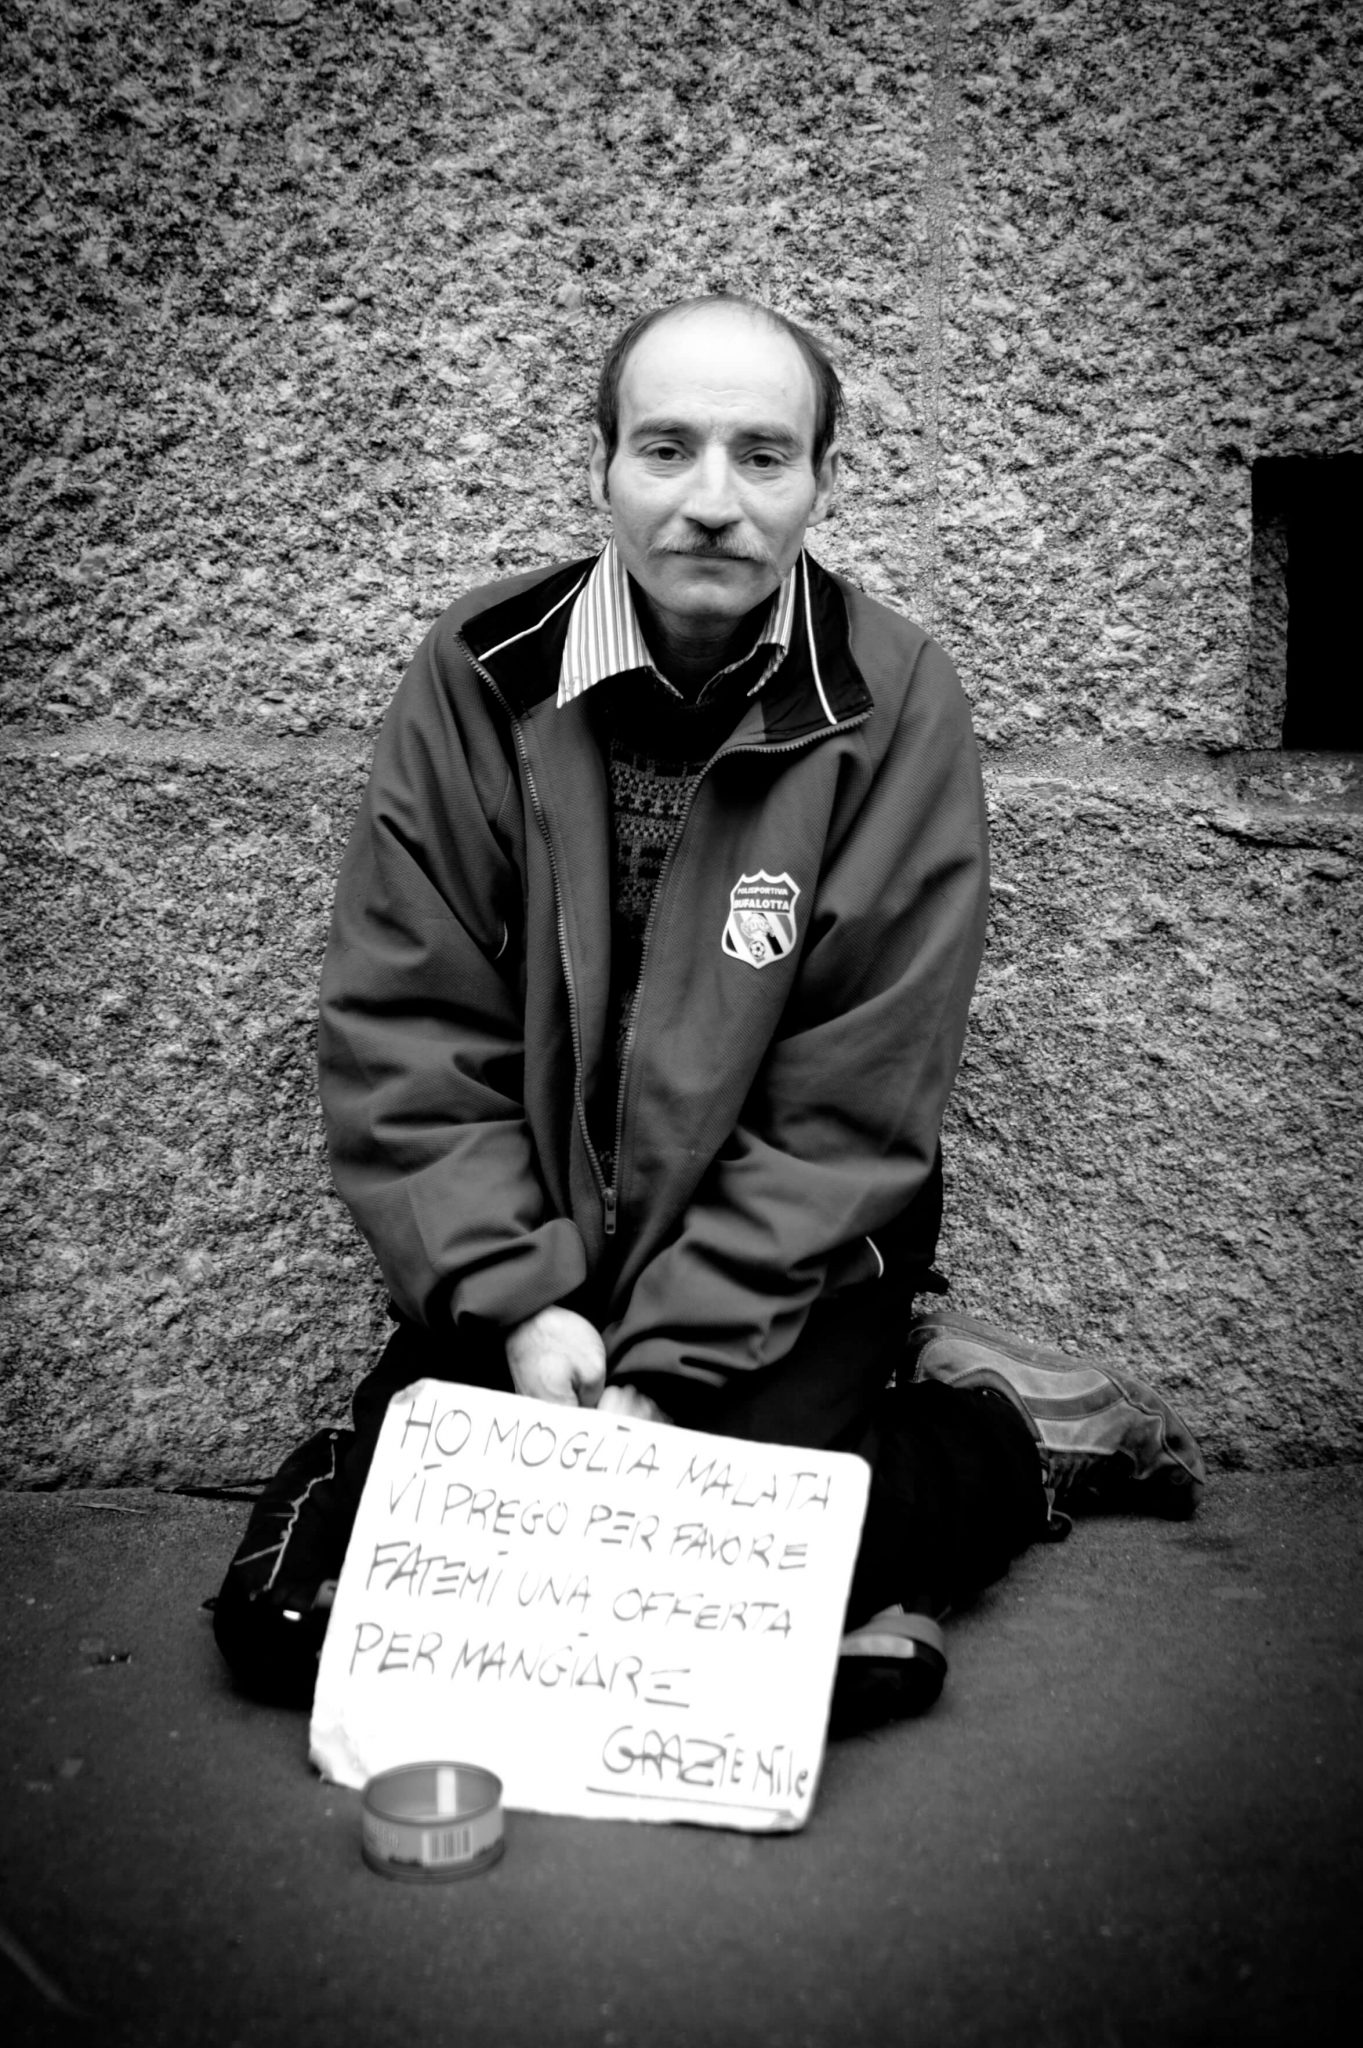 POLISPORTIVA
BUFALOTTA
HO MOGLIA MALATA
VI PREGO PER FAVORE
FATEMI UNA OFFERTA
PER MANGIARE
GRAZIE Mile